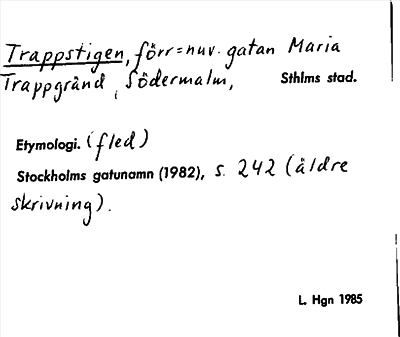 Trappstigen, förr = nuv. gatan Maria
Trappgränd, Södermalm, Sthlms stad.
Etymologi. (fled)
Stockholms gatunamn (1982), s. 242 (äldre
skrivning).
L. Hgn 1985